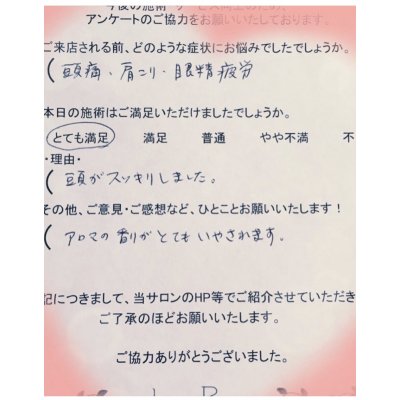 今後の施術・サービス向上のため、
アンケートのご協力をお願いいたしております。
ご来店される前、どのような症状にお悩みでしたでしょうか。
( 頭痛・肩こり・眼精疲労
本日の施術はご満足いただけましたでしょうか。
とても満足 満足 普通 やや不満 不
・理由・
( 頭がスッキリしました。
その他、ご意見・ご感想など、ひとことお願いいたします！
( アロマの香りがとてもいやされます。
記につきまして、当サロンのHP等でご紹介させていただき
ご了承のほどお願いいたします。
ご協力ありがとうございました。